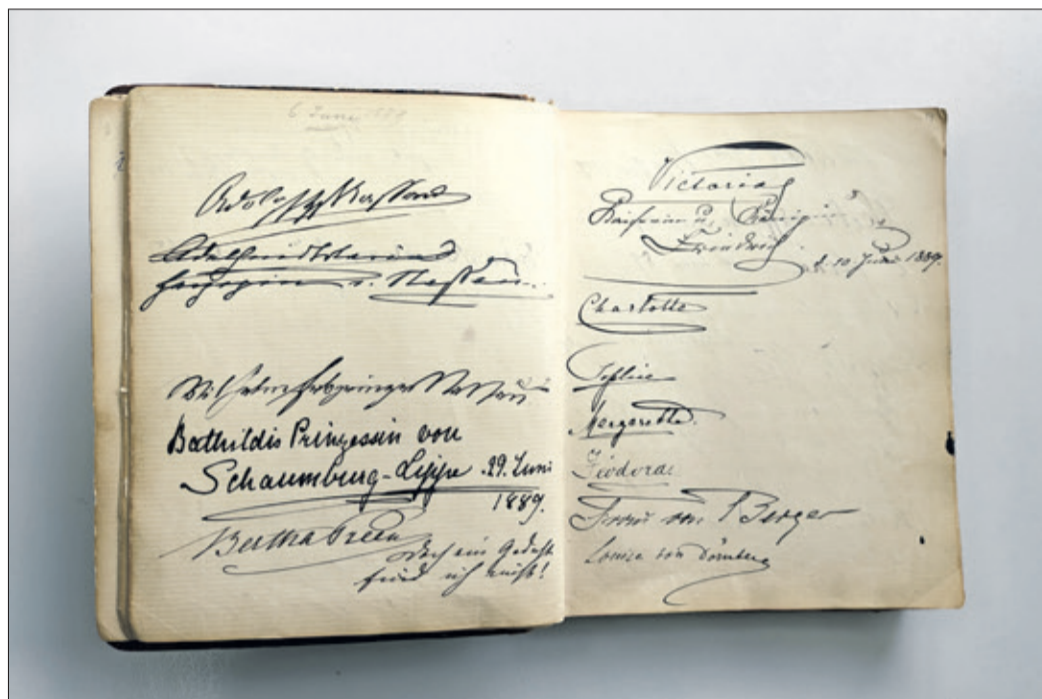 6 Juni 1889
Adolph H z Nassau
Adelheid Marie
Herzogin z. Nassau.
Wilhelm Erbprinz z Nassau
Bathildis Prinzessin von
Schaumburg-Lippe. 29. Juni
1889.
Bertha
doch ein Gedicht
fand ich nicht!
Victoria
Kaiserin u. Königin
Friedrich.
d. 10. Juni 1889.
Charlotte
Sophie
Margarethe.
Feodora
Frau von Berger
Louise von Dörnberg